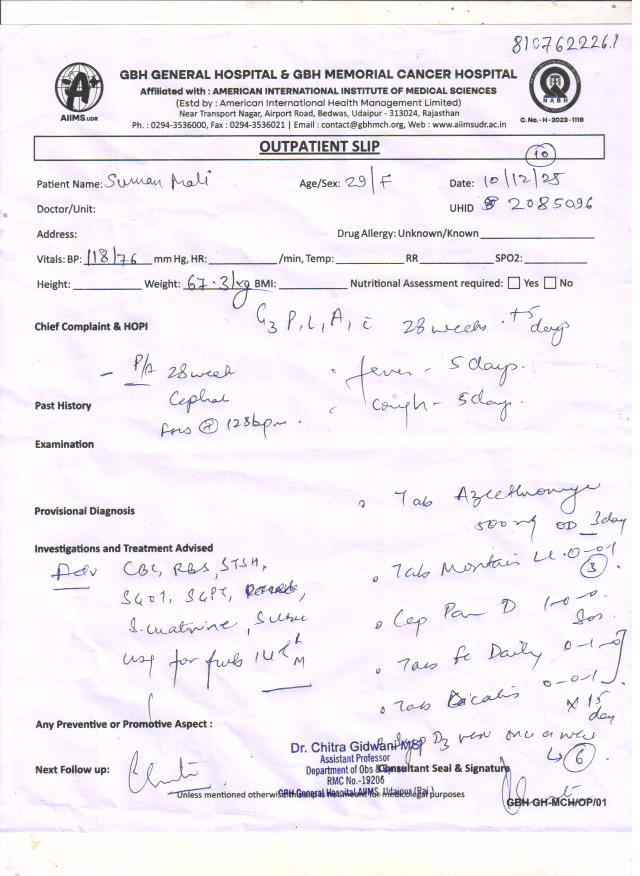 810762226.1
GBH GENERAL HOSPITAL & GBH MEMORIAL CANCER HOSPITAL
Affiliated with : AMERICAN INTERNATIONAL INSTITUTE OF MEDICAL SCIENCES
(Estd by : American International Health Management Limited)
Near Transport Nagar, Airport Road, Bedwas, Udaipur - 313024, Rajasthan
Ph. : 0294-3536000, Fax : 0294-3536021 | Email : contact@gbhmch.org, Web : www.aiimsudr.ac.in
AIIMS.UDR
NABH
C. No. - H - 2023 - 1119
OUTPATIENT SLIP
10
Patient Name: Suman Mali Age/Sex: 29/F Date: 10/12/25
Doctor/Unit: UHID 2085096
Address: Drug Allergy: Unknown/Known
Vitals: BP: 118/76 mm Hg, HR: /min, Temp: RR SPO2:
Height: Weight: 67.3 kg BMI: Nutritional Assessment required: Yes No
Chief Complaint & HOPI G3 P1 L1 A1 c 28 weeks +5 days
- P/A 28 week
fever - 5 days.
Cephal
Past History cough - 5 days.
FHS + 128 bpm.
Examination
Tab
Provisional Diagnosis 500 mg OD 3 day
Investigations and Treatment Advised
Adv CBC, RBS, STSH,
Tab Montair LC 0-0-1
3
SGOT, SGPT,
Cap Pan D 1-0-0
SOS
USG for
Tab Fe Daily 0-1-0
Tab 0-0-1
x 15 day
Any Preventive or Promotive Aspect :
D3 once a week
6
Dr. Chitra Gidwani MS
Assistant Professor
Department of Obs &
RMC No.-19206
GBH General Hospital AIIMS, Udaipur (Raj.)
Next Follow up: Consultant Seal & Signature
Unless mentioned otherwise for medicolegal purposes
GBH-GH-MCH/OP/01